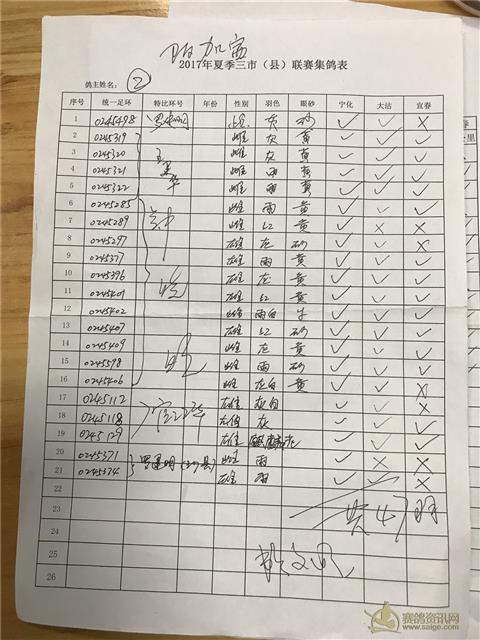 2017年夏季三市（县）联赛集鸽表
鸽主姓名： ②
序号 统一足环 特比环号 年份 性别 羽色 眼砂 宁化 大沽 宜春
1 0245498 灰 砂 ✓ ✓ ✗
2 0245319 雌 灰 黄 ✓ ✓ ✓
3 0245320 雌 灰 黄 ✓ ✓ ✓
4 0245321 雌 雨 黄 ✓ ✓ ✓
5 0245322 雌 雨 黄 ✓ ✓ ✓
6 0245285 雌 雨 黄 ✓ ✓ ✓
7 0245289 雌 红 黄 ✓ ✗ ✗
8 0245297 雄 灰 砂 ✓ ✓ ✗
9 0245377 雄 雨 黄 ✓ ✓ ✓
10 0245396 雄 灰 黄 ✓ ✓ ✓
11 0245401 雄 红 黄 ✓ ✓ ✓
12 0245402 雨白 牛 ✓ ✓ ✓
13 0245407 雄 红 砂 ✓ ✓ ✓
14 0245409 雌 灰 黄 ✓ ✓
15 0245598 雌 雨 砂 ✓ ✓ ✓
16 0245406 雌 灰白 黄 ✓ ✓ ✓
17 0245112 雄 灰白 ✓ ✗
18 0245118 雄 灰 ✓ ✓ ✓
19 0245129 雄 ✓ ✓ ✓
20 0245371 雌 雨 ✓ ✗ ✗
21 0245374 雄 雨 ✓ ✗
22
23 共47羽
24
25
26
赛鸽资讯网
www.saige.com